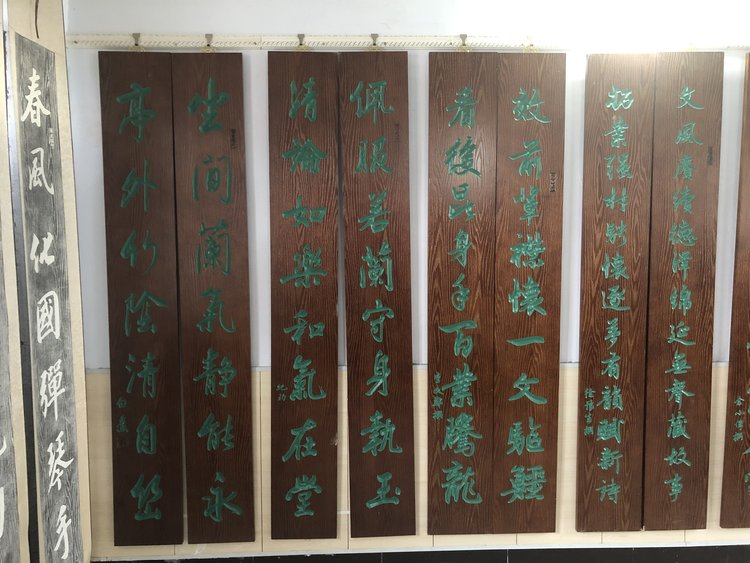 文風賡續德澤綿延無卷藏故事
拓業强村騁懷逐夢有韻賦新詩
效前輩襟懷一文驅鱷
看後昆身手百業騰龍
佩服若蘭守身執玉
清論如樂和氣在堂
坐間蘭氣靜能永
亭外竹陰清自悠
春風化國彈琴手